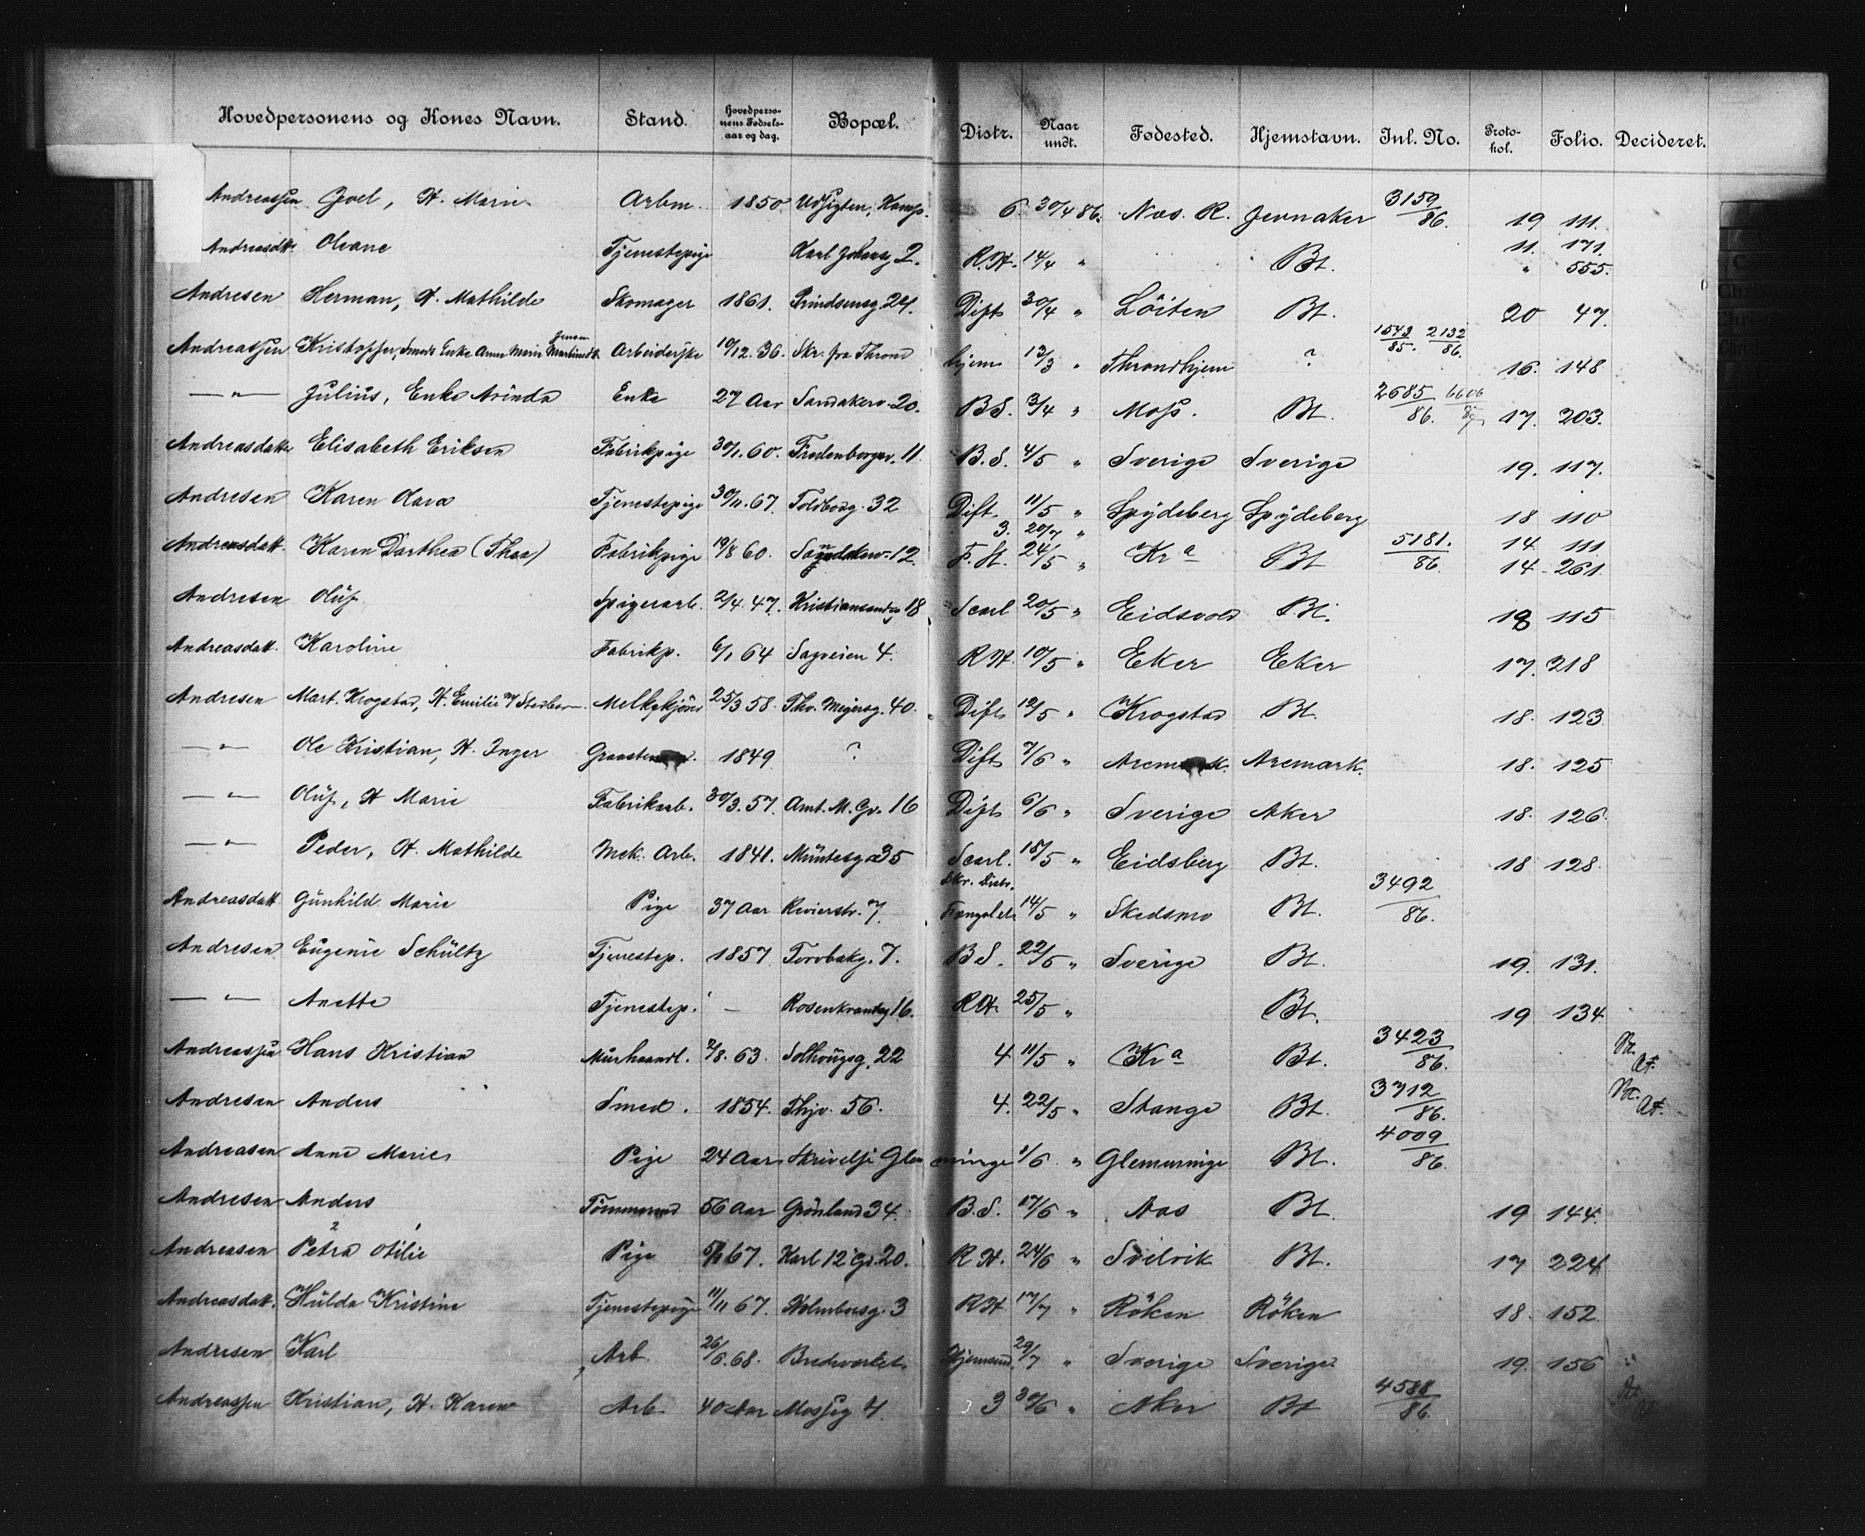 Hovedpersonens og Kones Navn. Stand. Hovedpersonens Fødselsaar og dag. Bopæl. Distr. Naar undt. Fødested. Hjemstavn. Inl. No. Protokol. Folio. Decideret.
Andreassen Joel, H. Marie Arbm. 1850 Udsigten, Kamp. 6 30/4 86. Næs. R. Jevnaker 3159/86. 19 111.
Andreasdtr. Oleane Tjenestepige Karl Johansg 2. R.H. 14/4 " Bt. 11. 171. " 555.
Andresen Herman, H. Mathilde Skomager 1861. Prindsensg. 24. Dift 30/4 " Löiten Bt. 20 47.
Andreassen Kristoffer, Smeds Enke Anne Marie Arbeiderske 10/12. 36. Skr. fra Thrond hjem 13/3 " Throndhjem ? 1543/85. 2132/86. 16. 148
—"— Julius, Enke Arinda Enke 27 Aar Sandakerv. 20. B.S. 3/4 " Moss. Bt. 2685/86. 6606 17. 203.
Andreasdatter Elisabeth Eriksen Fabrikpige 30/1. 60. Fredenborgv. 11 B.S. 4/5 " Sverige Sverige 19. 117.
Andresen Karen Olava Tjenestepige 30/11. 67. Toldbodg. 32 Dift. 11/5 " Spydeberg Spydeberg 18 110
Andreasdatt. Karen Dorthea (Thea) Fabrikpige 19/8 60. 12. 3. 20/7 " F.H. 24/5 " Kra Bt 5181./86. 14. 111 14 - 261
Andresen Oluf Spigerarb. 2/4. 47. Kristiansandsg 18 Scarl 20/5 " Eidsvold Bt. 18 115
Andreasdatt. Karoline Fabrikp. 6/1 64 Sagveien 4. R.H. 10/5 " Eker Eker 17. 218
Andresen Mart. Krogstad, H. Emilie Melkekjører 25/3 58. Thv. Meyersg. 40. Dift 12/5 " Krogstad Bt. 18. 123
—"— Ole Kristian, H. Inger 1849 ? Dift 7/6 " Aremark. Aremark. 18. 125
—"— Oluf, H Marie Fabrikarb. 30/3. 57. Amt. M. Gr. 16 Dift 6/6 " Sverige Aker 18. 126.
—"— Peder, H. Mathilde Mek. Arb. 1841. Müntesga 35 Scarl. 15/5 " Eidsberg Bt. 18 128.
Andreasdatt Gunhild Marie Pige 37 Aar Rivierstr. 7. Skr. Distr. Fængslet 14/5 " Skedsmo Bt. 3492/86.
Andresen Eugenie Schültz Tjenestep. 1857 Torvbakg. 7. B.S. 22/5 " Sverige Bt. 19. 131.
—"— Anette Tjenestep. — Rosenkrandsg 16. R.H. 25/5 " Bt. 19 134
Andreassen Hans Kristian Murhaandl. 2/8. 63. Solhougsg. 22 4 11/5 " Kra Bt. 3423/86.
Andresen Anders Smed. 1854. Thjv. 56. 4. 22/5 " Stange Bt. 3712/86.
Andreasen Anne Marie Pige 24 Aar Skrivelse Glem minge 1/6 " Glemminge Bt. 4009/86.
Andresen Anders Tømmermd 56 Aar Grönland 34. B.S. 17/6 " Aas Bt. 19 144.
Andreasen Petra Otilie Pige 67. Karl 12 Gd. 20. R.H. 24/6 " Svelvik Bt. 17 224
Andreasdatt. Hulda Kristine Tjenestepige 11/11 67. Holmborsg. 3 R.H. 17/7 " Röken Röken 18. 152.
Andresen Karl Arb. 26/6. 68. Bredeverket Hjemsend. 29/7 " Sverige Sverige 19. 156
Andreassen Kristian, H. Karen Arb. 40 Aar Mosseg 4. 3 30/6 " Aker Bt 4588/86.